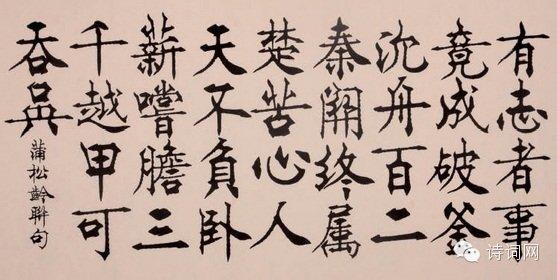 有志者事
竟成破釜
沈舟百二
秦關终属
楚苦心人
天不負卧
薪嚐膽三
千越甲可
吞吳
蒲松齡聯句
诗词网